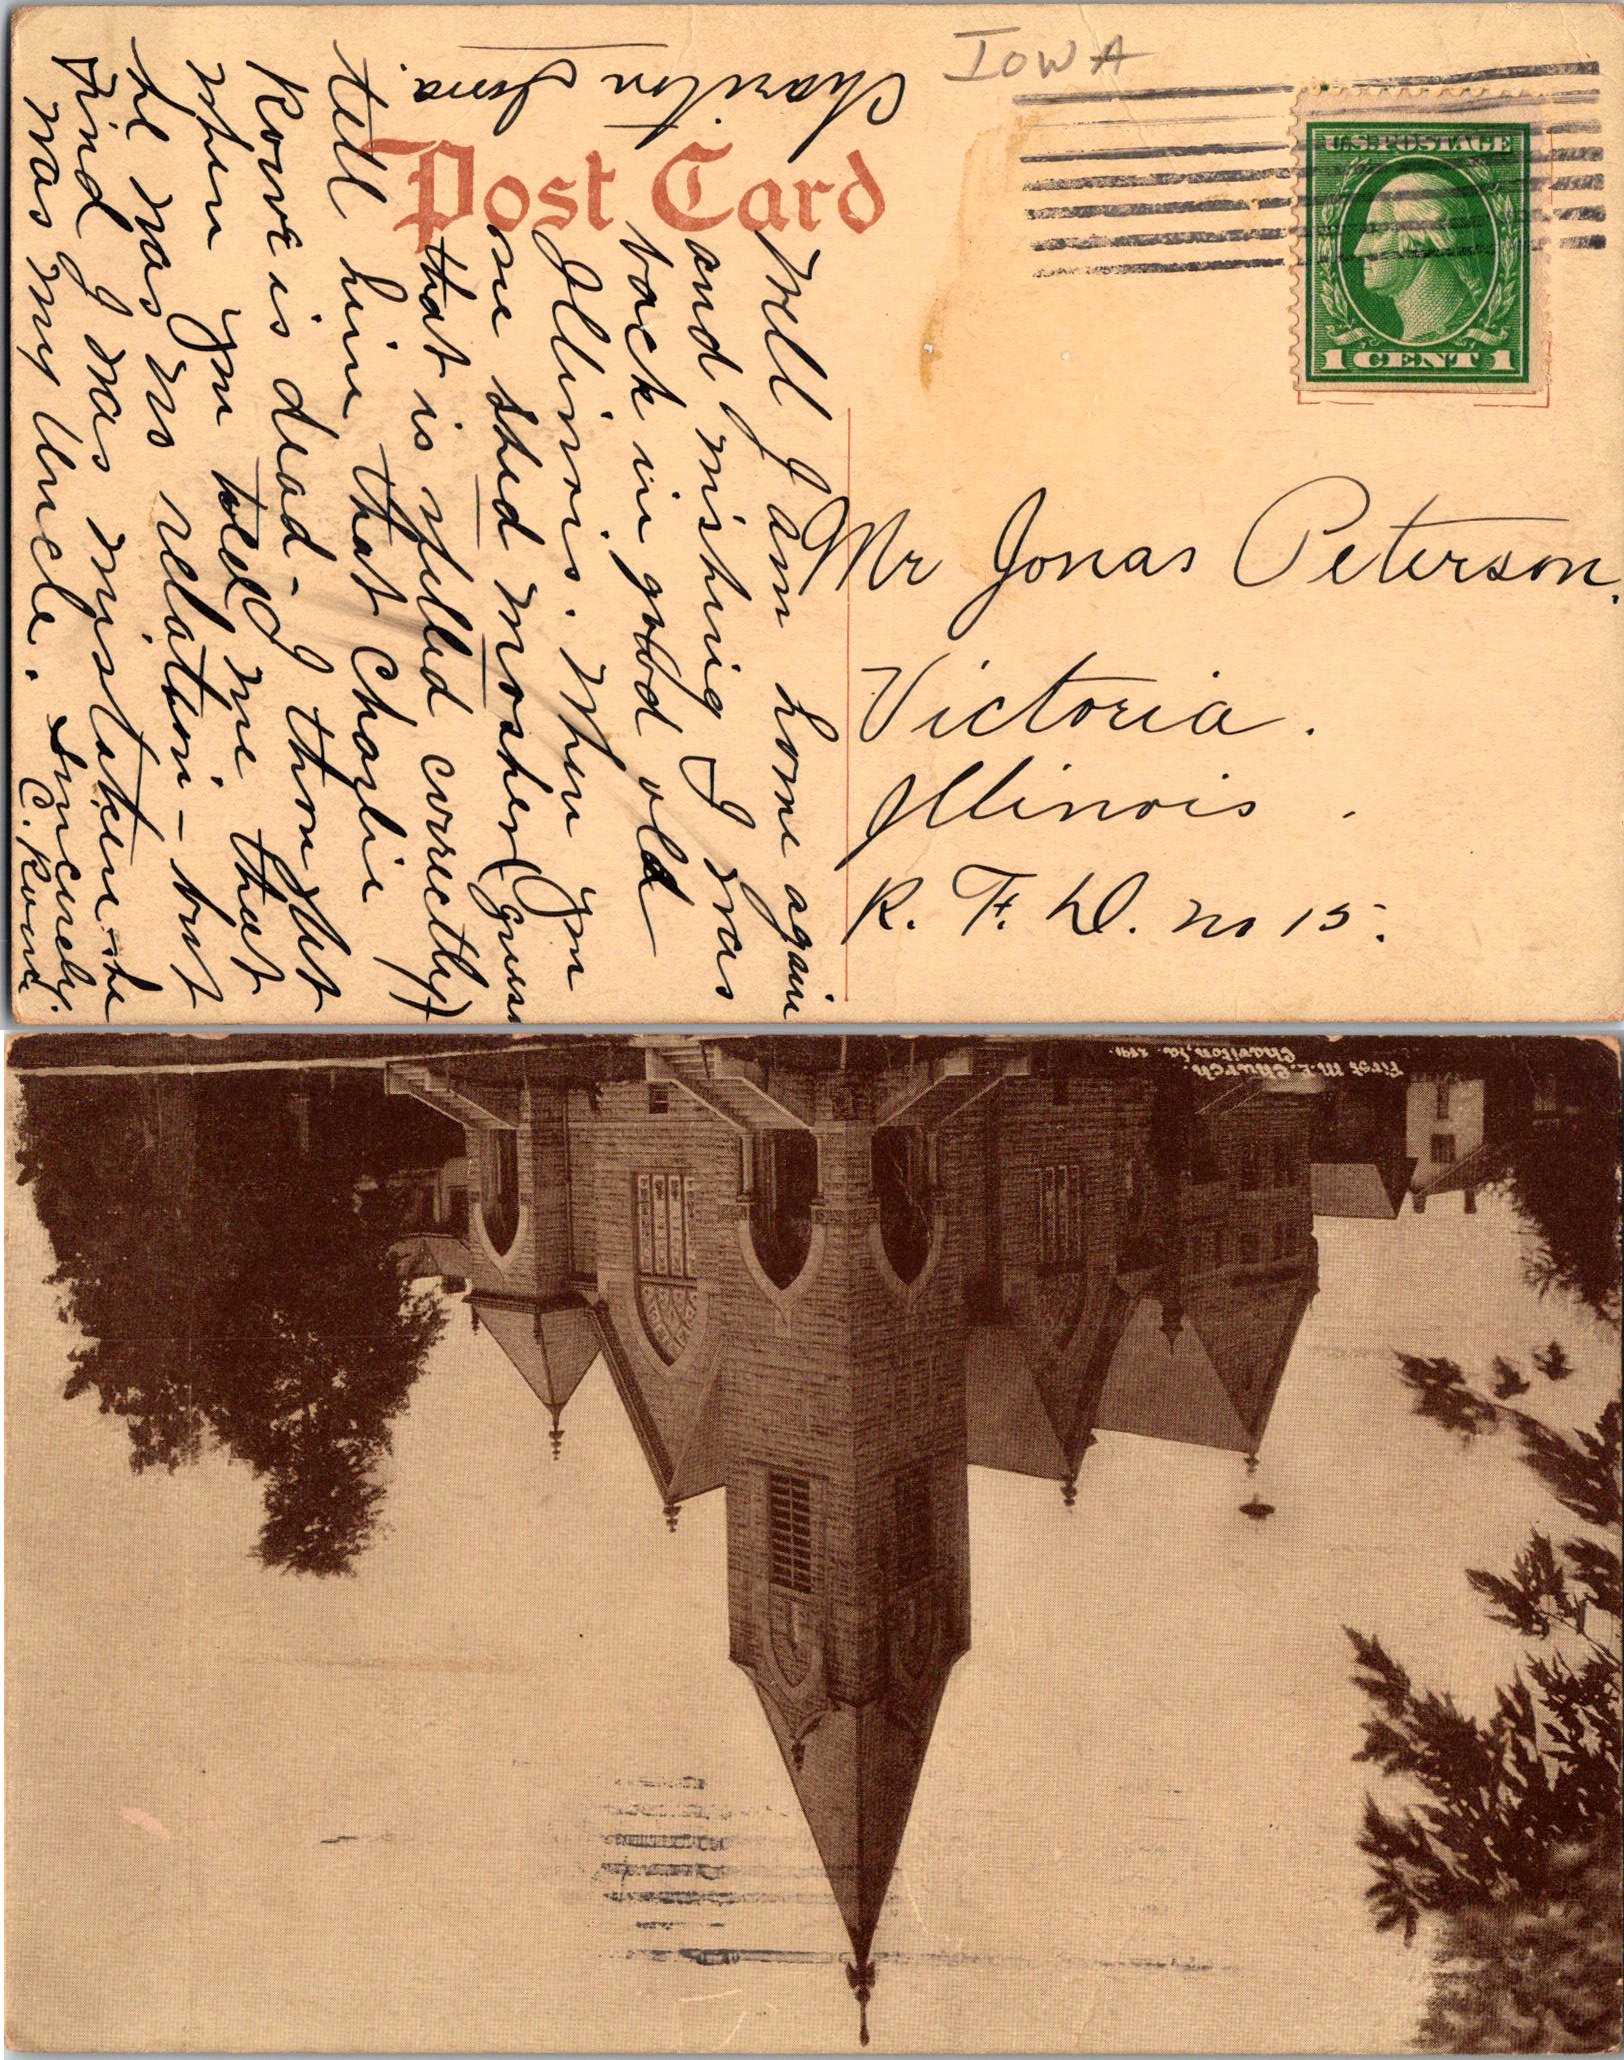 IOWA
Post Card
U.S. POSTAGE
1 CENT 1
Chariton Iowa.
Well I am home again
and wishing I was
back in good old
Illinois. When you
see Sted Mosher (guess
that is spelled correctly)
tell him that Charlie
Rowe is dead - I thought
when you told me that
he was no relation - but
find I was mistaken - he
was my Uncle.
Sincerely.
C. Rowe
Mr Jonas Peterson.
Victoria.
Illinois.
R. F. D. no 15.
First M.E. Church.
Chariton, Ia.